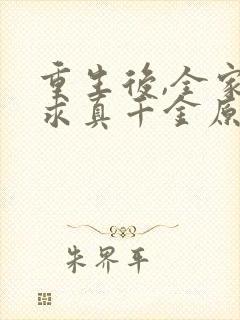 重生後,全家
求真千金原
朱界平